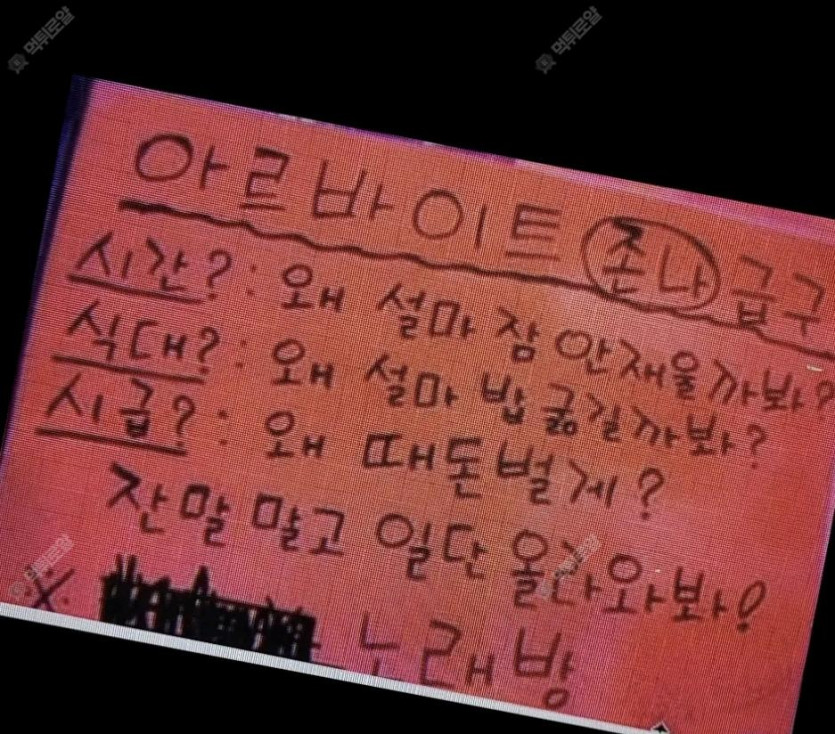 먹튀로얄
먹튀로얄
아르바이트 존나 급구
시간?: 왜 설마 잠 안재울까봐?
식대?: 왜 설마 밥 굶길까봐?
시급?: 왜 떼돈벌게?
잔말 말고 일단 올라와봐!
※ 노래방
먹튀로얄
먹튀로얄